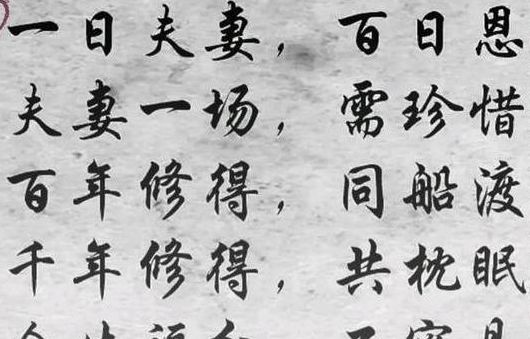 一日夫妻，百日恩
夫妻一场，需珍惜
百年修得，同船渡
千年修得，共枕眠